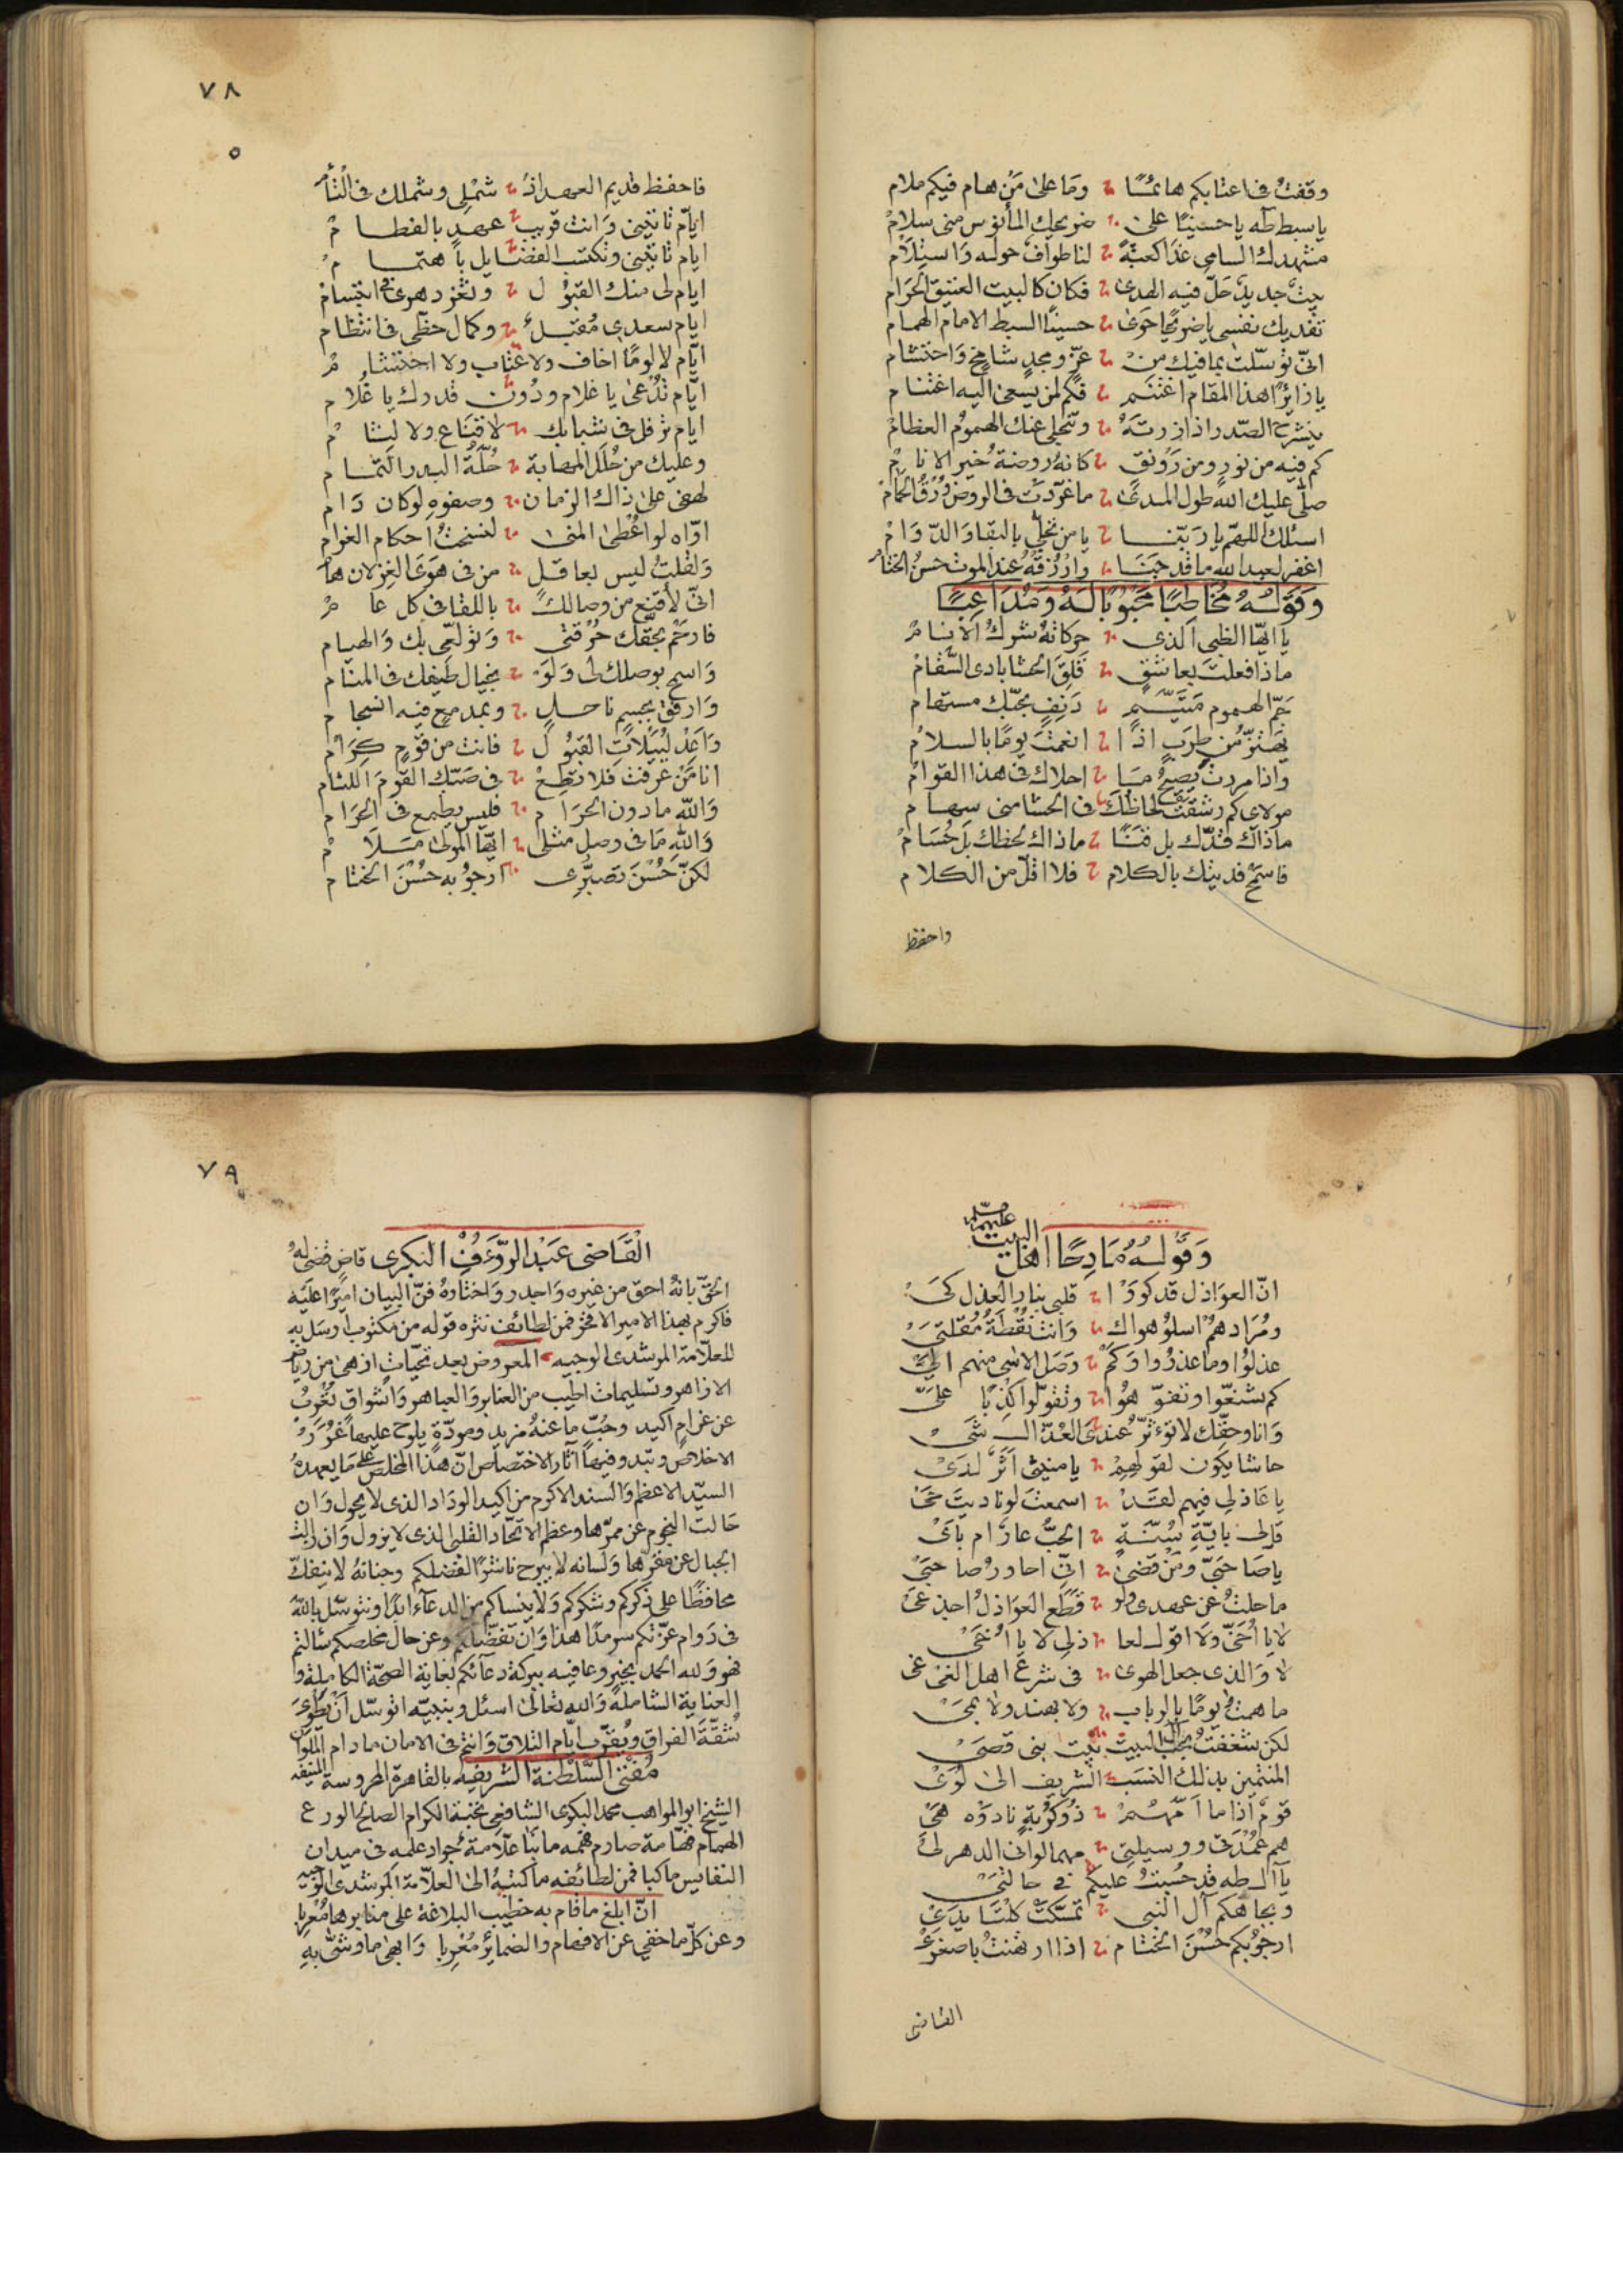 وقفت في اعتابكم هائما وما على من هام فيكم ملام
يا سبط طه يا حسينا على ضريحك المأنوس مني سلام
مشهدك السامي غدا كعبة لنا طواف حوله واستلام
بيت جديد حل فيه الهدى فكان كالبيت العتيق الحرام
تفديك نفسي يا ضريحا حوى حسينا السبط الامام الهمام
اني توسلت بما فيك من عز ومجد شامخ واحتشام
يا زائرا هذا المقام اغتنم فكم لمن يسعى اليه اغتنام
ينشرح الصدر اذا زرته وتنجلي عنك الهموم العظام
كم فيه من نور ومن رونق كانه روضة خير الانام
صلى عليك الله طول المدى ما غردت في الروض ورق الحمام
اسئلك اللهم يا ربنا يا من تجلى بالبقا والدوام
اغفر لعبد الله ما قد جنى وارزقه عند الموت حسن الختام
وقوله مخاطبا محبوبا له ومداعبا
يا ايها الظبي الذي حركاته شرك الانام
ماذا فعلت بعاشق قلق الحشا بادي السقام
جم الهموم متيم دنف بحبك مستهام
يهتز من طرب اذا انعمت يوما بالسلام
واذا مررت يصيح ما احلاك في هذا القوام
مولاي كم رشقت لحاظك في الحشا مني سهام
ما ذاك قدك بل قنا ما ذاك لحظك بل حسام
فاسمح فديتك بالكلام فلا اقل من الكلام
واحفظ
٧٨
٥
فاحفظ قديم العهد اذ شملي وشملك في التئام
ايام تاتيني وانت قريب عهد بالفطام
ايام تاتيني وتكتسب الفضايل باهتمام
ايام لي منك القبول وثغر دهري في ابتسام
ايام سعدي مقبل وكمال حظي في انتظام
ايام لا لوما اخاف ولا عتاب ولا احتشام
ايام تدعى يا غلام ودون قدرك يا غلام
ايام ترفل في شبابك لا قناع ولا لثام
وعليك من حلل المهابة حلة البدر التمام
لهفي على ذاك الزمان وصفوه لو كان دام
اواه لو اعطى المنى لنسخت احكام الغرام
ولقلت ليس بعاقل من في هوى الغزلان هام
اني لاقنع من وصالك باللقا في كل عام
فارحم بحقك حرقتي وتولعي بك والهيام
واسمح بوصلك لي ولو بخيال طيفك في المنام
وارفق بجسم ناحل وبمدمع فيه انسجام
واعد لييلات القبول فانت من قوم كرام
انا من عرفت فلا تطع في صبك القوم اللئام
والله ما دون الحرام فليس يطمع في الحرام
والله ما في وصل مثلي ايها المولى ملام
لكن حسن تصبري ارجو به حسن الختام
وقوله مادحا اهل البيت عليهم
ان العواذل قد كووا قلبي بنار العذل كي
ومرادهم اسلو هواك وانت نقطة مقلتي
عذلوا وما عذروا وكم وصل الاسى منهم الي
كم شنعوا وتفوهوا وتقولوا كذبا علي
وانا وحقك لا تؤثر عندي العذال شي
حاشا يكون لقولهم يا منيتي اثر لدي
يا عاذلي فيهم لقد اسمعت لو ناديت حي
قل لي باية سنة الحب عار ام باي
يا صاحبي ومن قضى اني احاور صاحبي
ما حلت عن عهدي ولو قطع العواذل اخدعي
لا يا اخي ولا اقول لعاذلي لا يا اخي
لا والذي جعل الهوى في شرع اهل الغي غي
ما همت يوما بالرباب ولا بهند ولا بمي
لكن شغفت بحب ال البيت بيت بني قصي
المنتمين بذلك النسب الشريف الى لؤي
قوم اذا ما امهم ذو كربة نادوه هي
هم عمدتي ووسيلتي مهما لواني الدهر لي
يا آل طه قد حسبت عليكم في حالتي
وبجاهكم آل النبي تمسكت كلتا يدي
ارجو بكم حسن الختام اذا ارتهنت باصغري
القاضي
٧٩
القاضي عبد الرؤف البكري قاض قضى له
الحق بانه احق من غيره واجدر واختاره فن البيان اميرا عليه
فاكرم بهذا الامير الافخر فمن لطائف نثره قوله من مكتوب ارسل به
للعلامة المرشدي الوجيه المعروض بعد تحيات ازهى من رياض
الازاهر وتسليمات اطيب من العنابر والعباهر واشواق تعرب
عن غرام اكيد وحب ما عنه مزيد ومودة يلوح عليها غرر
الاخلاص وتبدو فيها آثار الاختصاص ان هذا المخلص على ما يعهده
السيد الاعظم والسند الاكرم من اكيد الوداد الذي لا يحول وان
حالت النجوم عن ممرها وعظم الاتحاد القلبي الذي لا يزول وان زالت
الجبال عن مقرها ولسانه لا يبرح ناشرا لفضلكم وجنانه لا ينفك
محافظا على ذكركم وشكركم ولا ينساكم من الدعآء ابدا ونتوسل بالله
في دوام عزتكم سرمدا هذا وان تفضلتم وعن حال مخلصكم سالتم
فهو ولله الحمد بخير وعافيه ببركة دعآئكم لغاية الصحة الكاملة و
العناية الشاملة والله تعالى اسئل وبنبيه اتوسل ان يطوى
شقة الفراق ويقرب ايام التلاق وانتم في الامان ما دام الملوان
مفتي السلطنة الشريفه بالقاهرة المحروسة المنيفه
الشيخ ابو المواهب محمد البكري الشافعي نخبة الكرام الصالح الورع
الهمام فهامة صارم فهمه ما نبا علامة جواد علمه في ميدان
النفايس ما كبا فمن لطائفه ما كتبه الى العلامة المرشدي الوجيه
ان ابلغ ما قام به خطيب البلاغة على منابرها معربا
وعن كل ما خفي عن الافهام والضمائر مغربا وابهى ما وشى به